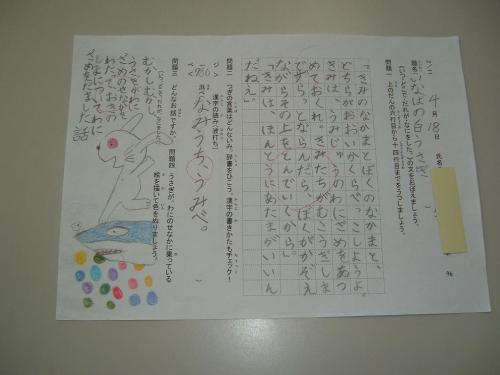 4月18日 氏名
題名「いなばの白うさぎ」
(いつ・どこで・だれが・なにをした。この文をおぼえましょう。
問題一 上のだんの六行目から十四行目までをうつしましょう。
「きみのなかまとぼくのなかまと、
どちらがおおいかくらべっこしようよ。
きみは、うみじゅうのわにざめをあつ
めておくれ。きみたちがむこうぎしま
でずらっとならんだら、ぼくがかぞえ
ながらその上をとんでいくから」
「きみは、ほんとうにあたまがいいん
だねえ」
問題二 つぎの言葉はどんないみ。辞書をひこう。漢字の書きかたもチェック!
漢字の読み(波打ち)
浜べ(なみうち、うみべ。)
問題三 どんなお話ですか。
むかしむかし、
うさぎがわに
ざめのせなかを
わたっておきの
しまについてわに
ざめをだました話
問題四 うさぎが、わにのせなかに乗っている
絵を描いて色をぬりましょう。